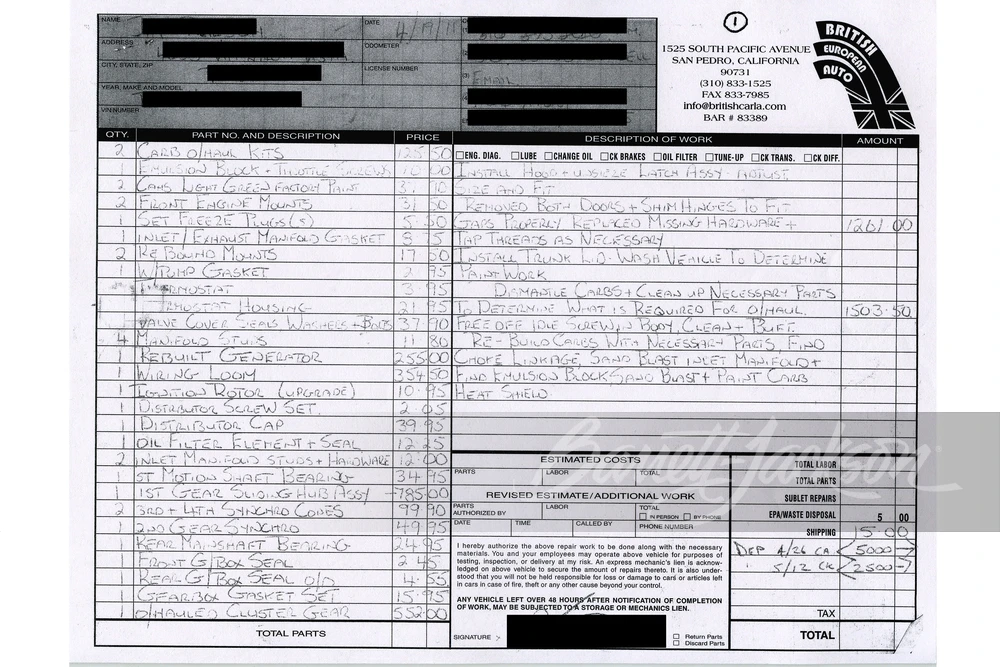 NAME
DATE 4/19/11
ADDRESS
ODOMETER
CITY, STATE, ZIP
LICENSE NUMBER
(3) EMAIL
YEAR, MAKE AND MODEL
VIN NUMBER
1
1525 SOUTH PACIFIC AVENUE
SAN PEDRO, CALIFORNIA
90731
(310) 833-1525
FAX 833-7985
info@britishcarla.com
BAR # 83389
BRITISH
EUROPEAN
AUTO
QTY. PART NO. AND DESCRIPTION PRICE
2 CARB O/HAUL KITS 125 50
1 EMULSION BLOCK + THROTTLE SCREWS 10 00
2 CANS LIGHT GREEN FACTORY PAINT 37 90
2 FRONT ENGINE MOUNTS 31 50
1 SET FREEZE PLUGS (5) 5 50
1 INLET/EXHAUST MANIFOLD GASKET
2 REBOUND MOUNTS 17 50
1 W/PUMP GASKET 2 95
3 95
HOUSING 21 95
VALVE COVER SEALS WASHERS + BOLTS 37 90
4 MANIFOLD STUDS 11 80
1 REBUILT GENERATOR 255 00
1 WIRING LOOM 354 50
1 IGNITION ROTOR (UPGRADE) 10 95
1 DISTRIBUTOR SCREW SET 2 05
1 DISTRIBUTOR CAP 39 95
1 OIL FILTER ELEMENT + SEAL 12 25
2 INLET MANIFOLD STUDS + HARDWARE 12 00
1 1ST MOTION SHAFT BEARING 34 95
1 1ST GEAR SLIDING HUB ASSY 785 00
2 3RD + 4TH SYNCHRO CONES 99 90
1 2ND GEAR SYNCHRO 49 95
1 REAR MAINSHAFT BEARING 24 95
1 FRONT G/BOX SEAL 2 45
1 REAR G/BOX SEAL O/D 4 55
1 GEARBOX GASKET SET 15 95
1 O/HAULED CLUSTER GEAR 552 00
TOTAL PARTS
DESCRIPTION OF WORK AMOUNT
ENG. DIAG. LUBE CHANGE OIL CK BRAKES OIL FILTER TUNE-UP CK TRANS. CK DIFF.
INSTALL HOOD + UNSIEZE LATCH ASSY. ADJUST
SIZE AND FIT
REMOVED BOTH DOORS + SHIM HINGES TO FIT
GAPS PROPERLY REPLACED MISSING HARDWARE + 1261 00
TAP THREADS AS NECESSARY
INSTALL TRUNK LID. WASH VEHICLE TO DETERMINE
PAINTWORK
DISMANTLE CARBS + CLEAN UP NECESSARY PARTS
TO DETERMINE WHAT IS REQUIRED FOR O/HAUL. 1503 50
FREE OFF IDLE SCREW IN BODY, CLEAN + BUFF.
RE-BUILD CARBS WITH NECESSARY PARTS, FIND
CHOKE LINKAGE, SAND BLAST INLET MANIFOLD +
FIND EMULSION BLOCK, SAND BLAST + PAINT CARB
HEAT SHIELD
Barrett-Jackson
ESTIMATED COSTS
PARTS LABOR TOTAL
REVISED ESTIMATE/ADDITIONAL WORK
PARTS LABOR TOTAL
AUTHORIZED BY IN PERSON BY PHONE
DATE TIME CALLED BY PHONE NUMBER
I hereby authorize the above repair work to be done along with the necessary
materials. You and your employees may operate above vehicle for purposes of
testing, inspection, or delivery at my risk. An express mechanic's lien is acknow-
ledged on above vehicle to secure the amount of repairs thereto. It is also under-
stood that you will not be held responsible for loss or damage to card or articles left
in cars in case of fire, theft or any other cause beyond your control.
ANY VEHICLE LEFT OVER 48 HOURS AFTER NOTIFICATION OF COMPLETION
OF WORK, MAY BE SUBJECTED TO A STORAGE OR MECHANICS LIEN.
SIGNATURE
Return Parts
Discard Parts
TOTAL LABOR
TOTAL PARTS
SUBLET REPAIRS
EPA/WASTE DISPOSAL 5 00
SHIPPING 15 00
DEP 4/26 CK <5000 ->
" 5/12 CK <2500 ->
TAX
TOTAL